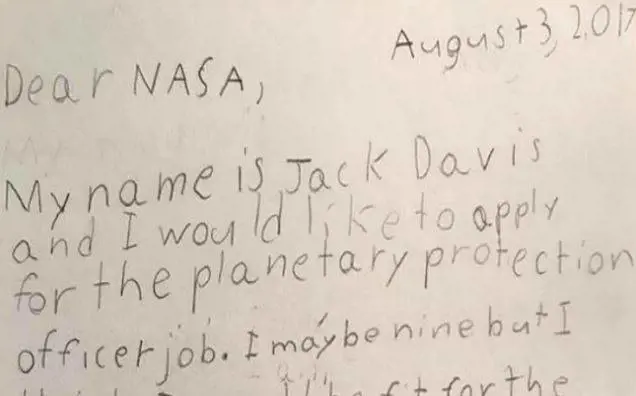 August 3, 2017
Dear NASA,
My name is Jack Davis
and I would like to apply
for the planetary protection
officer job. I may be nine but I
fit for the